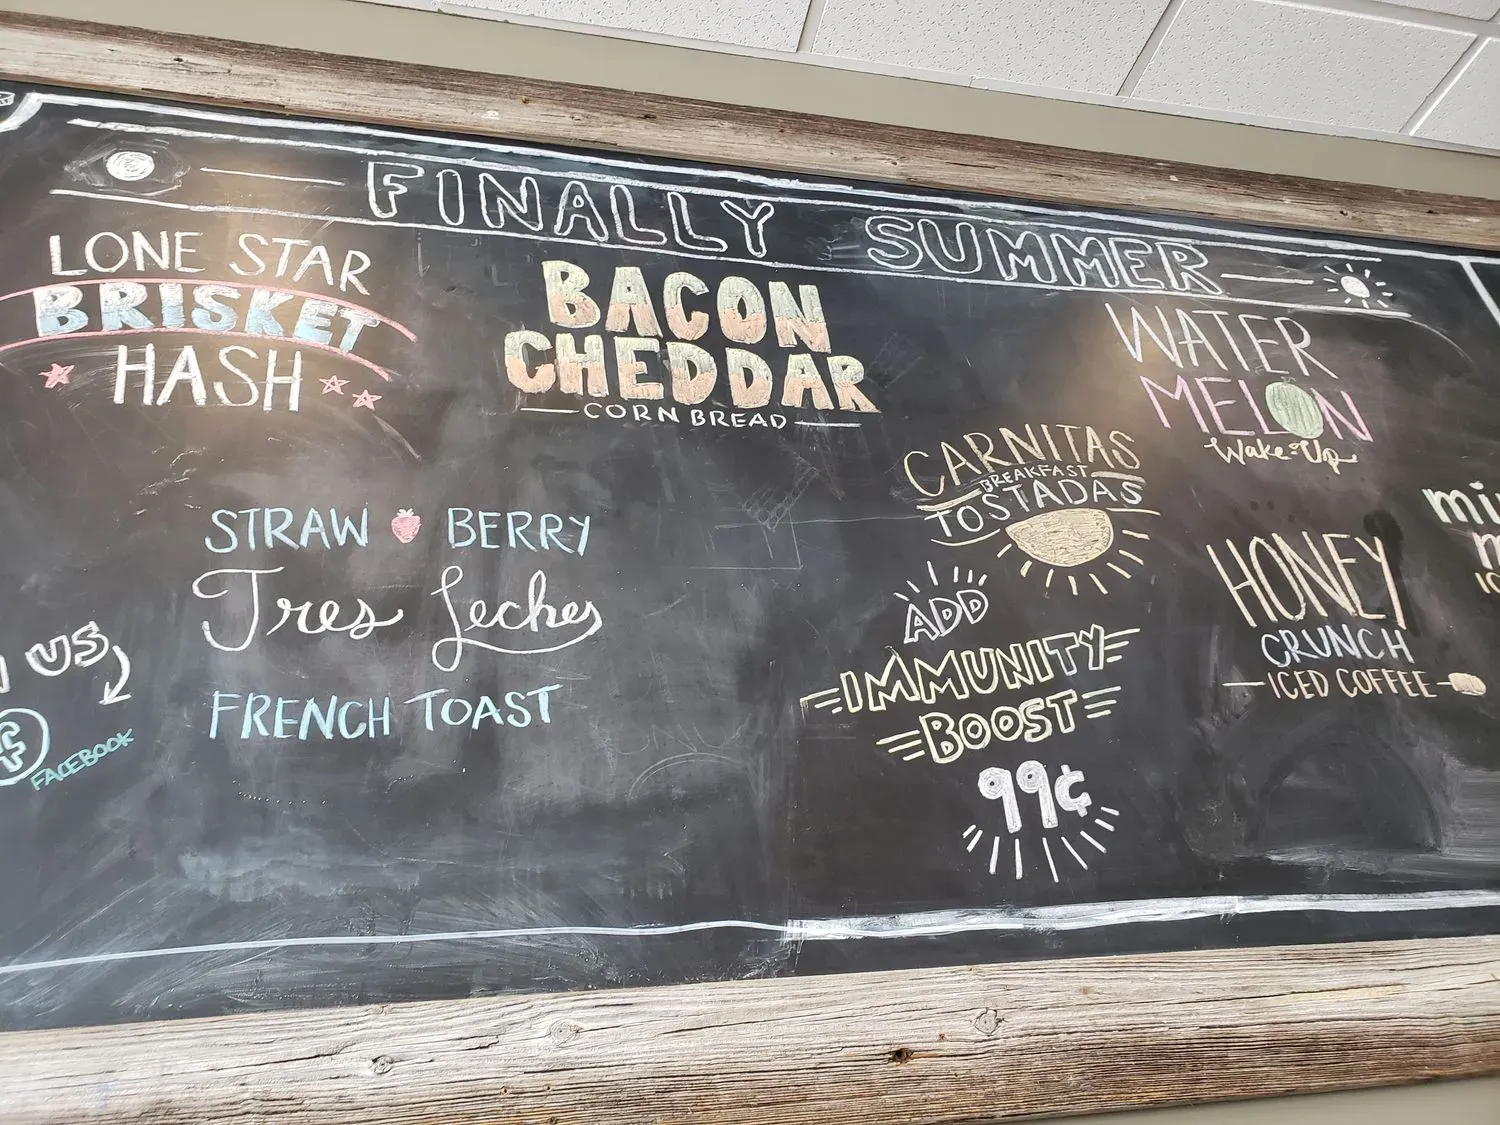 FINALLY SUMMER
LONE STAR
BRISKET
HASH
BACON
CHEDDAR
CORN BREAD
WATER
MELON
Wake-Up
CARNITAS
BREAKFAST
TOSTADAS
STRAW BERRY
Tres Leches
FRENCH TOAST
ADD
IMMUNITY
BOOST
99¢
HONEY
CRUNCH
ICED COFFEE
US
f
FACEBOOK